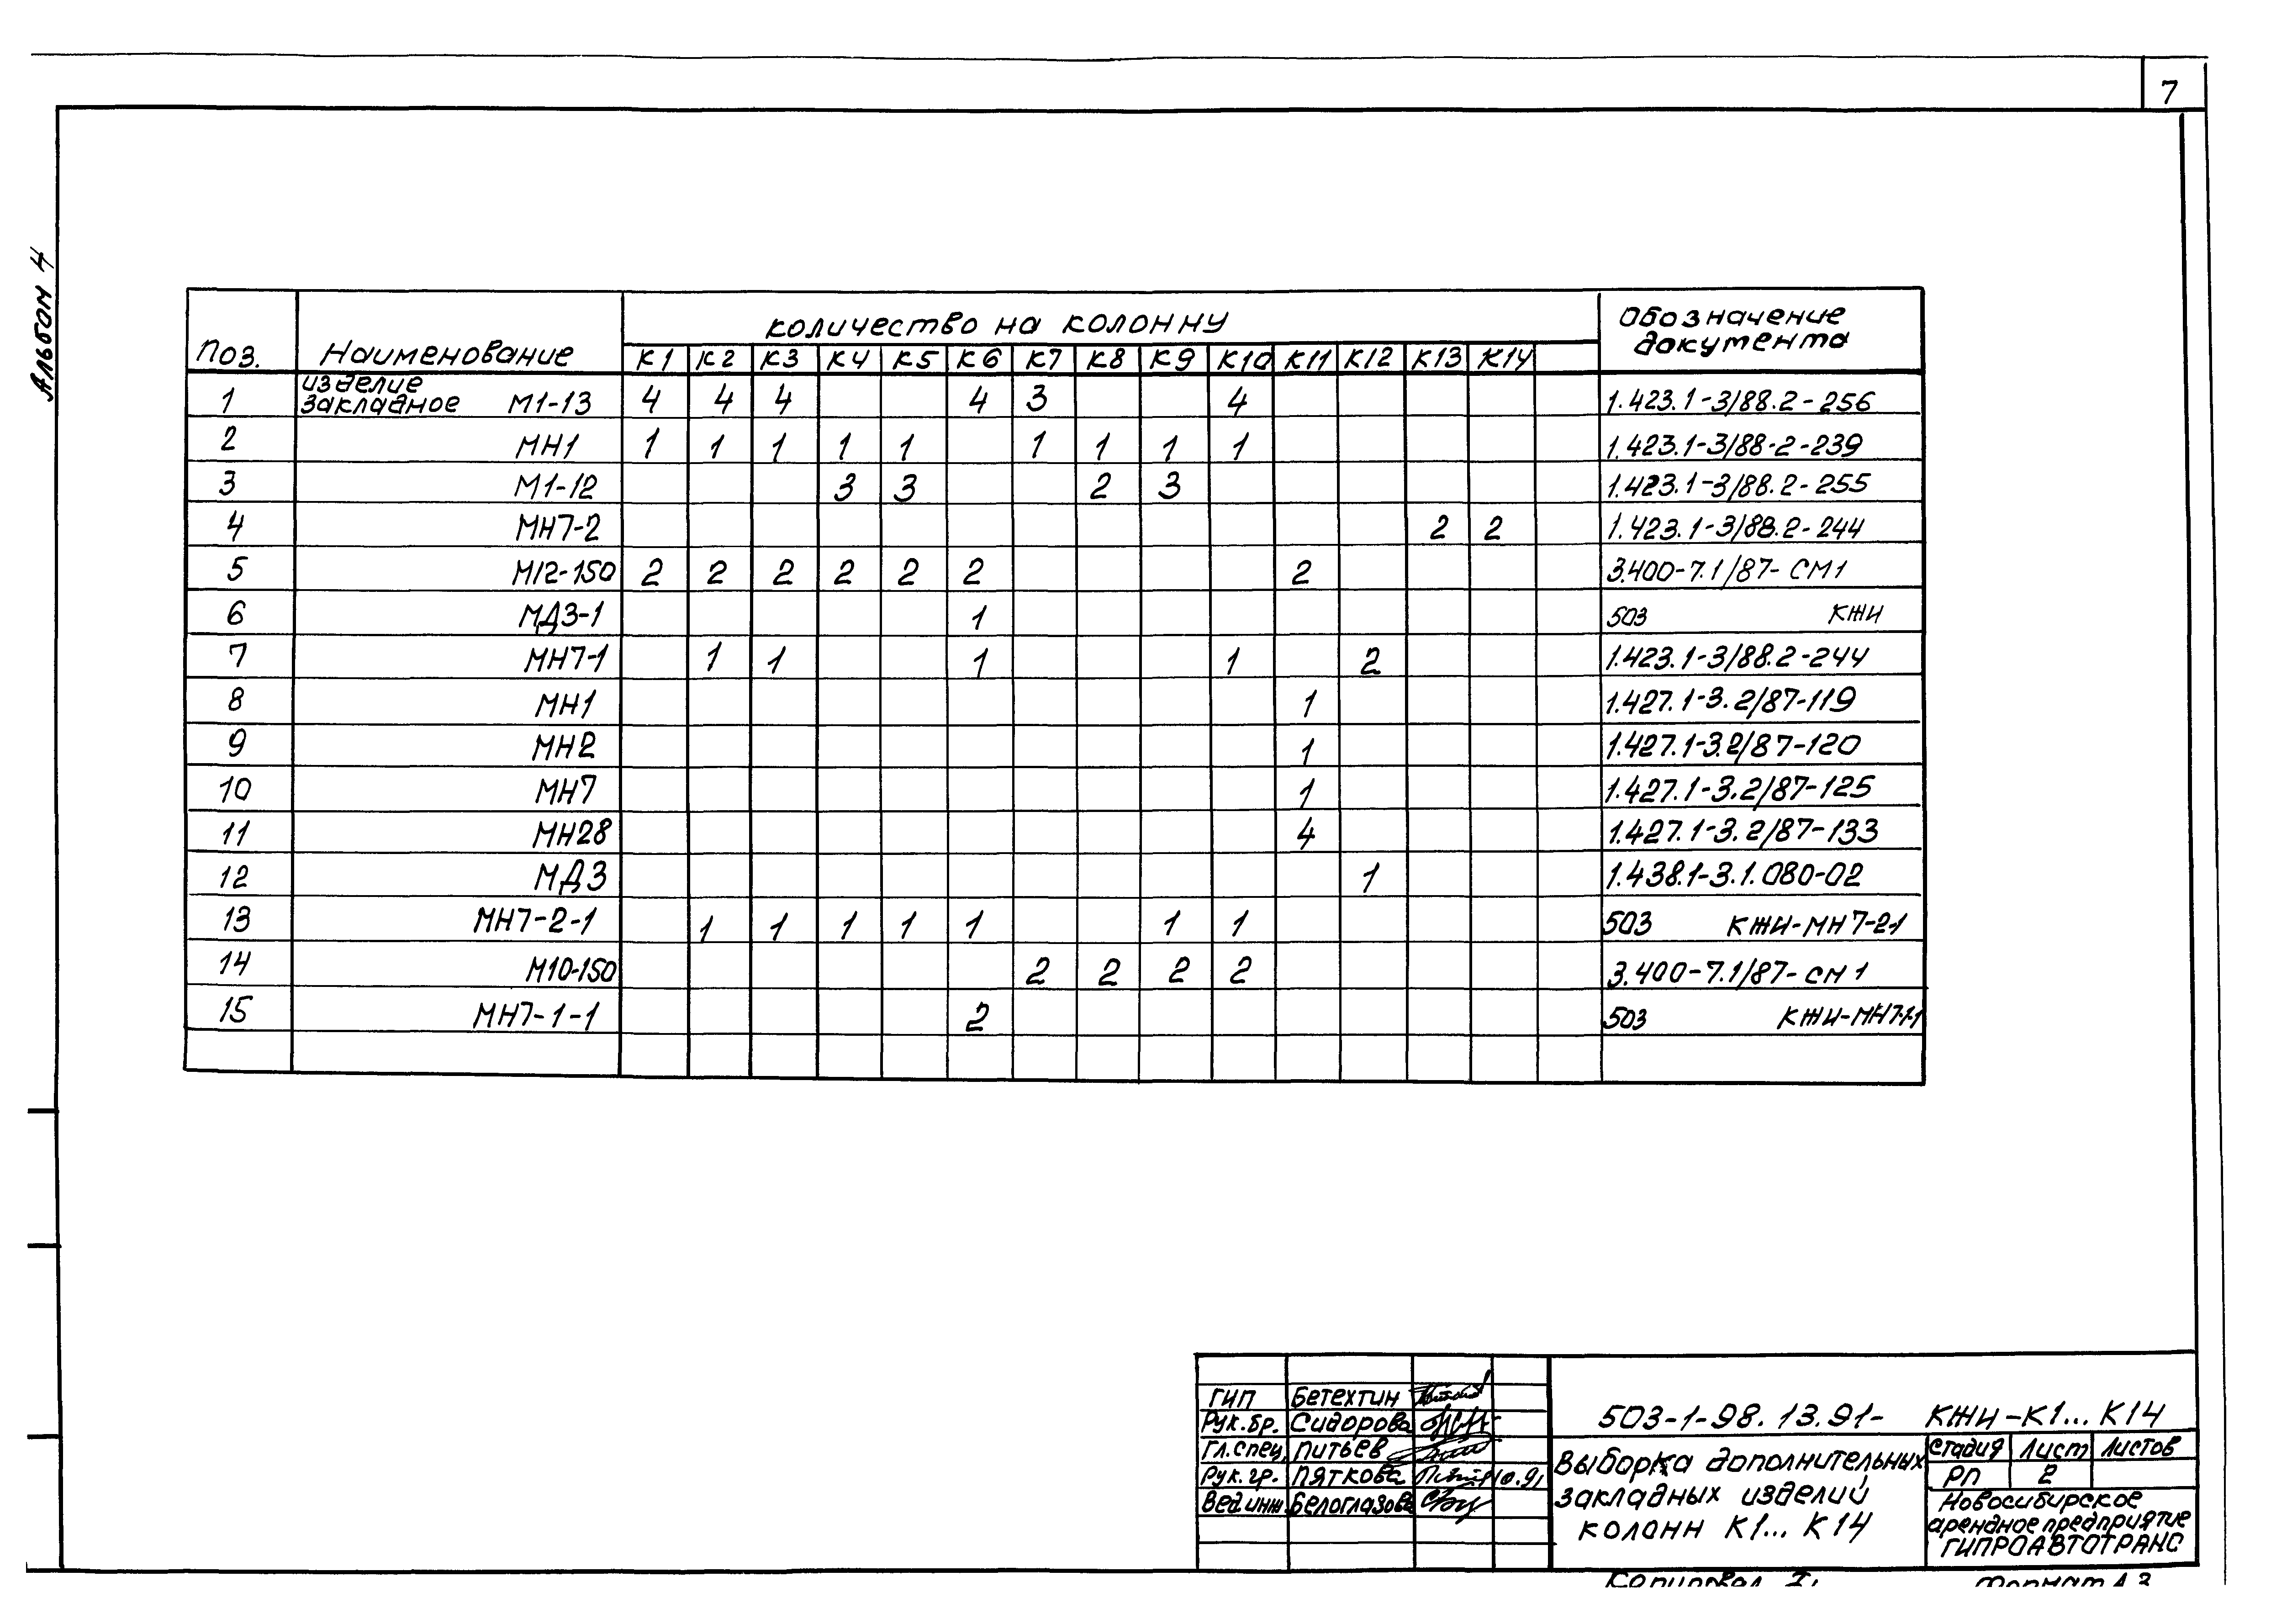 7
Альбом 4
Поз. Наименование количество на колонну Обозначение документа
К1 К2 К3 К4 К5 К6 К7 К8 К9 К10 К11 К12 К13 К14
1 изделие закладное М1-13 4 4 4 4 3 4 1.423.1-3/88.2-256
2 МН1 1 1 1 1 1 1 1 1 1 1.423.1-3/88-2-239
3 М1-12 3 3 2 3 1.423.1-3/88.2-255
4 МН7-2 2 2 1.423.1-3/88.2-244
5 М12-150 2 2 2 2 2 2 2 3.400-7.1/87-СМ1
6 МД3-1 1 503 КЖИ
7 МН7-1 1 1 1 1 2 1.423.1-3/88.2-244
8 МН1 1 1.427.1-3.2/87-119
9 МН2 1 1.427.1-3.2/87-120
10 МН7 1 1.427.1-3.2/87-125
11 МН28 4 1.427.1-3.2/87-133
12 МД3 1 1.438.1-3.1.080-02
13 МН7-2-1 1 1 1 1 1 1 1 503 КЖИ-МН7-2-1
14 М10-150 2 2 2 2 3.400-7.1/87-см1
15 МН7-1-1 2 503 КЖИ-МН7-1-1
ГИП Бетехтин
Рук.бр. Сидорова
Гл.спец. Питьев
Рук.гр. Пяткова 10.91
Вед.инж. Белоглазова
503-1-98.13.91- КЖИ-К1...К14
Выборка дополнительных
закладных изделий
колонн К1...К14
Стадия Лист Листов
РП 2
Новосибирское
арендное предприятие
ГИПРОАВТОТРАНС
Копировал
Формат А3